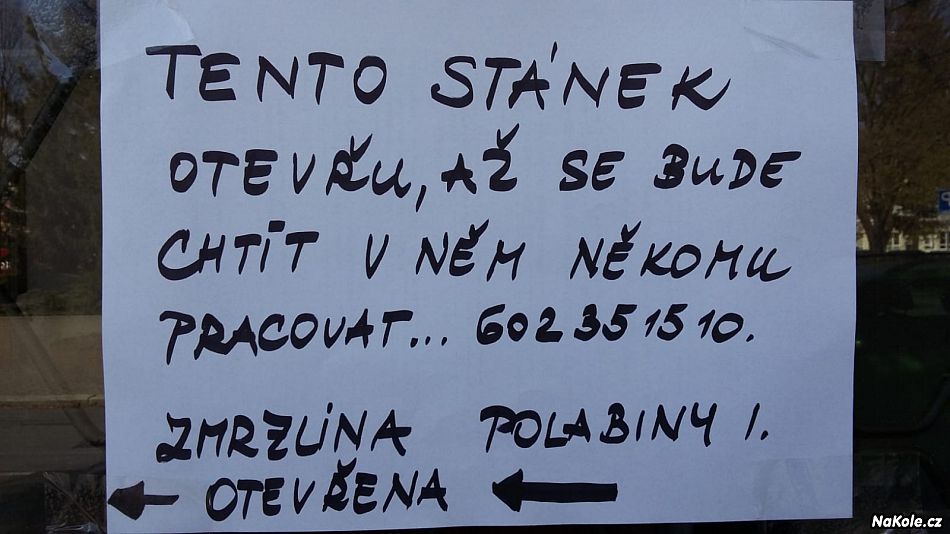 TENTO STÁNEK
OTEVŘU, AŽ SE BUDE
CHTÍT V NĚM NĚKOMU
PRACOVAT... 602351510.
ZMRZLINA POLABINY I.
← OTEVŘENA ←
NaKole.cz